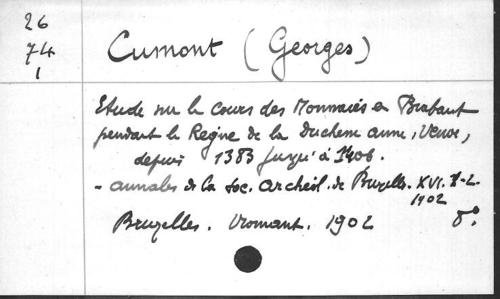 26
74
1
Cumont (Georges)
Etude sur le cours des Monnaies en Brabant
pendant le Regne de la Duchesse Anne, Veuve,
depuis 1383 jusqu'à 1406.
- Annales de la Soc. Archéol. de Bruxelles. XVI. 1-2.
1902
Bruxelles. Vromant. 1902 8º.